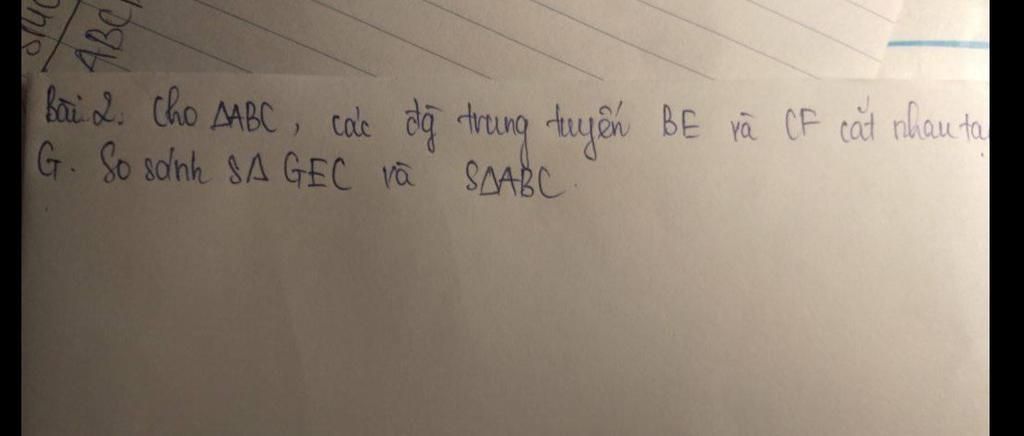 ABC
Bài 2. Cho ΔABC, các đg̃ trung tuyến BE và CF cắt nhau tạ
G. So sánh SΔ GEC và SΔABC.